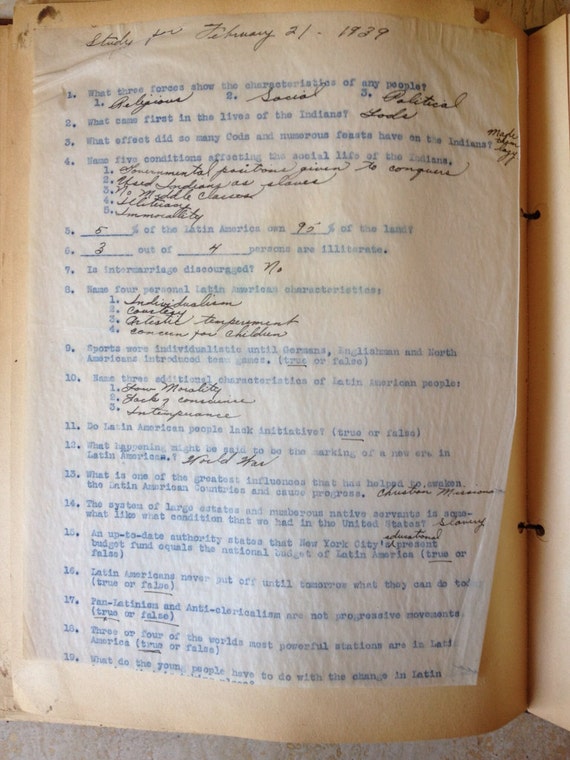 Study for February 21 - 1939
1. What three forces show the characteristics of any people?
1. Religious 2. Social 3. Political
2. What came first in the lives of the Indians? Gods
3. What effect did so many Gods and numerous feasts have on the Indians?
4. Name five conditions affecting the social life of the Indians.
1. Governmental positions given to conquers
2. Used Indians as slaves
3. No Middle Classes
4. Illiteracy
5. Immorality
5. 5 % of the Latin America own 95 % of the land?
6. 3 out of 4 persons are illiterate.
7. Is intermarriage discouraged? No
8. Name four personal Latin American characteristics:
1. Individualism
2. Courtesy
3. Artistic temperment
4. concern for children
9. Sports were individualistic until Germans, Englishman and North
Americans introduced team games. (true or false)
10. Name three additional characteristics of Latin American people:
1. Low Morality
2. Lack of conscience
3. Intemperance
11. Do Latin American people lack initiative? (true or false)
12. What happening might be said to be the marking of a new era in
Latin American.? World War
13. What is one of the greatest influences that has helped to awaken
the Latin American Countries and cause progress. Christian Missions
14. The system of large estates and numberous native servants is some-
what like what condition that we had in the United States? Slavery
15. An up-to-date authority states that New York City's present
educational
budget fund equals the national budget of Latin America (true or
false)
16. Latin Americans never put off until tomorrow what they can do today
(true or false)
17. Pan-Latinism and Anti-clericalism are not progressive movements.
(true or false)
18. Three or four of the worlds most powerful stations are in Latin
America (true or false)
19. What do the young people have to do with the change in Latin